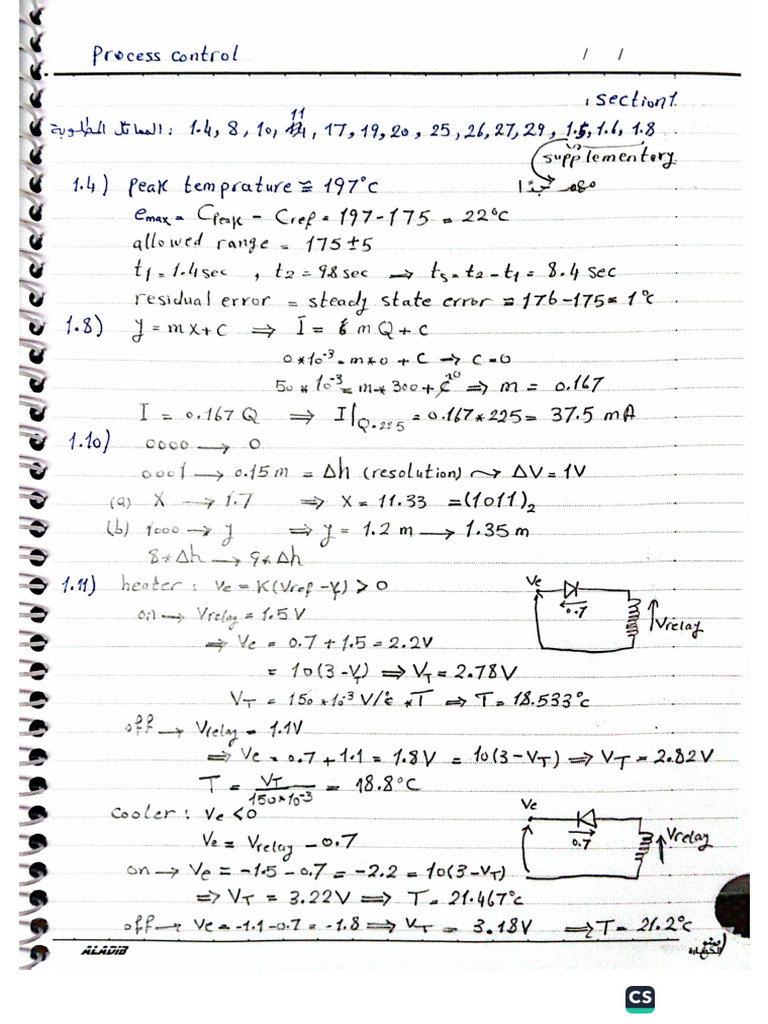 Process control / /
section 1
المسائل المطلوبة : 1.4, 8, 10, 11, 17, 19, 20, 25, 26, 27, 29, 1.5, 1.6, 1.8
supplementary
مهم جدا
1.4) peak temprature ≅ 197°c
e_max = C_peak - C_ref = 197-175 = 22°C
allowed range = 175 ± 5
t1 = 1.4 sec , t2 = 9.8 sec → ts = t2 - t1 = 8.4 sec
residual error = steady state error = 176-175 = 1°c
1.8) y = mx + c ⇒ I = mQ + c
0*10^-3 = m*0 + C → C=0
50 * 10^-3 = m*300 + c^0 ⇒ m = 0.167
I = 0.167 Q ⇒ I|Q=225 = 0.167*225 = 37.5 mA
1.10) 0000 → 0
0001 → 0.15 m = Δh (resolution) ↝ ΔV = 1V
(a) X → 1.7 ⇒ X = 11.33 = (1011)₂
(b) 1000 → y ⇒ y = 1.2 m → 1.35 m
8*Δh → 9*Δh
1.11) heater : Ve = K(Vref - V_T) > 0
on → Vrelay = 1.5 V
⇒ Ve = 0.7 + 1.5 = 2.2V
= 10(3-V_T) ⇒ V_T = 2.78V
V_T = 150*10^-3 V/°c * T ⇒ T = 18.533°c
Ve
0.7
Vrelay
off → Vrelay = 1.1V
⇒ Ve = 0.7 + 1.1 = 1.8V = 10(3-V_T) ⇒ V_T = 2.82V
T = V_T / 150*10^-3 = 18.8°C
Cooler : Ve < 0
Ve = Vrelay - 0.7
Ve
0.7
Vrelay
on → Ve = -1.5 - 0.7 = -2.2 = 10(3-V_T)
⇒ V_T = 3.22V ⇒ T = 21.467°c
off → Ve = -1.1-0.7 = -1.8 ⇒ V_T = 3.18V ⇒ T = 21.2°c
ALADIB
CS